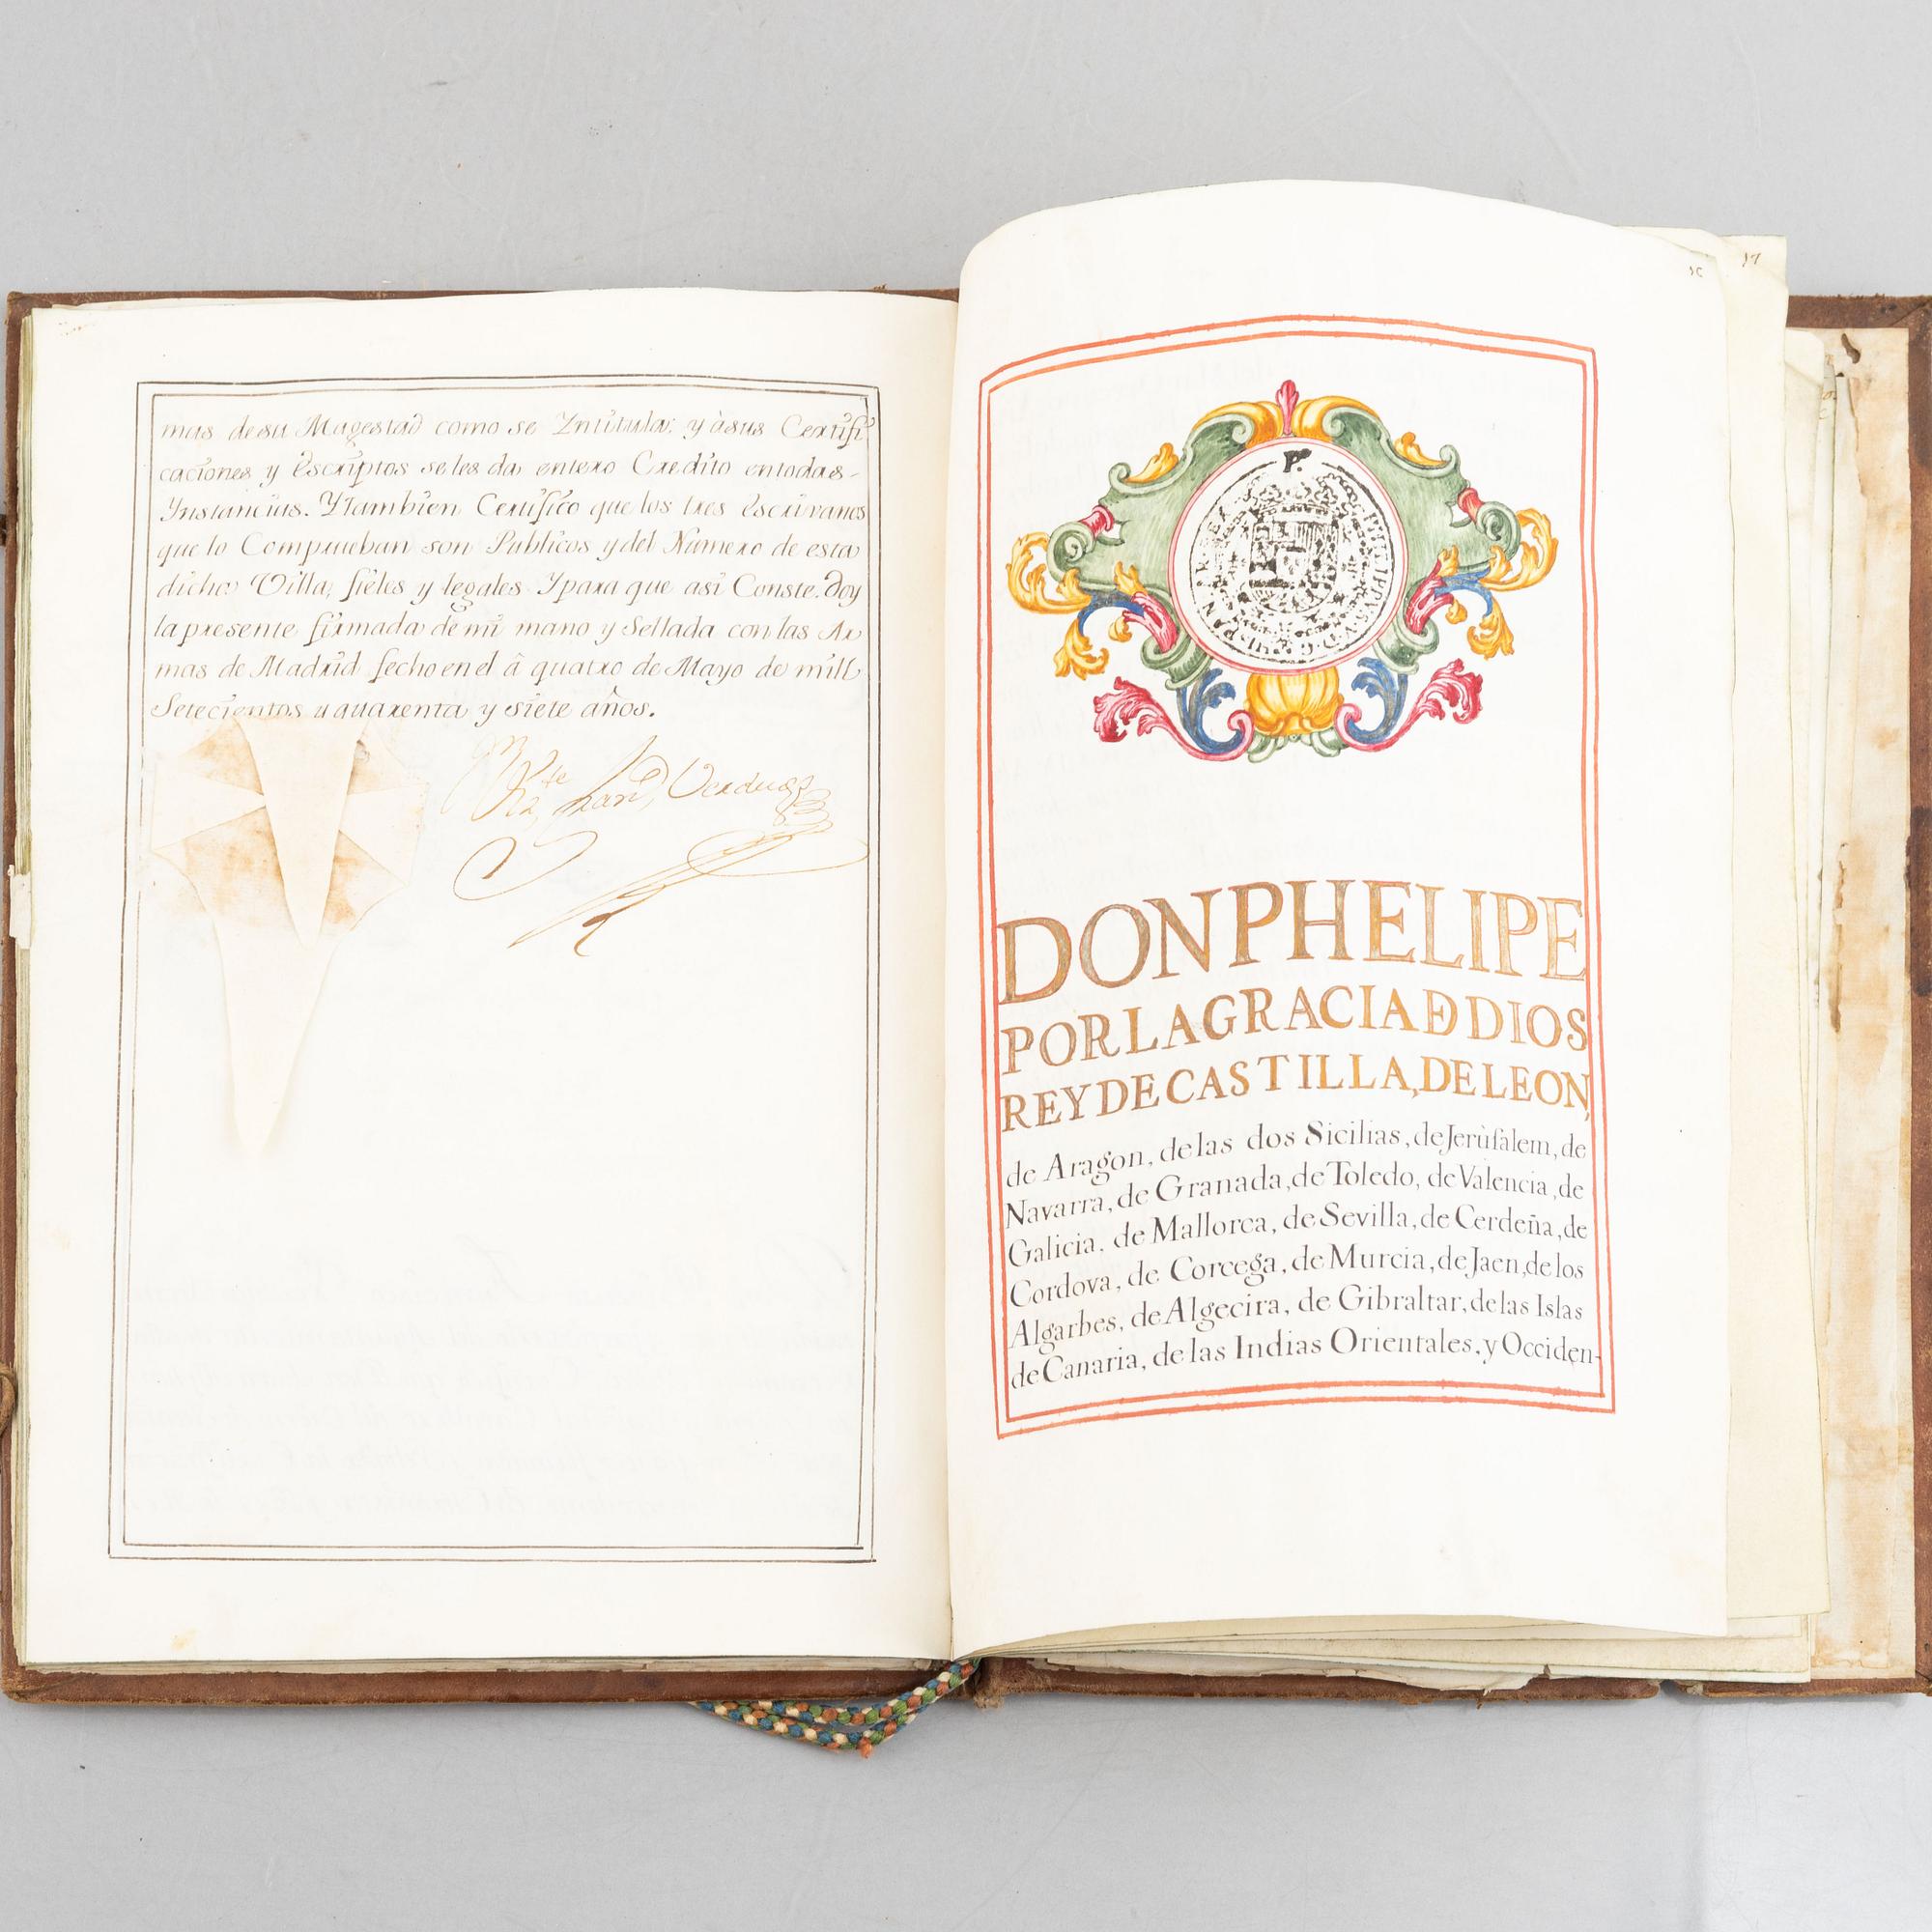 mas de su Magestad como se Yntitula: y à sus Certifi
caciones y Escriptos se les da entero Credito en todas-
Ynstancias. Y tambien Certifico que los tres Escrivanos
que lo Comprueban son Publicos y del Numero de esta
dicha Villa, fieles y legales Y para que asi Conste. Doy
la presente firmada de mi mano y Sellada con las Ar
mas de Madrid fecho en el â quatro de Mayo de mill
Setecientos y quarenta y siete años.
Verdugo
16
17
P.
PHILIPPUS V D G HISPAN REX
DON PHELIPE
POR LA GRACIA DE DIOS
REY DE CASTILLA, DE LEON,
de Aragon, de las dos Sicilias, de Jerùsalem, de
Navarra, de Granada, de Toledo, de Valencia, de
Galicia. de Mallorca, de Sevilla, de Cerdeña, de
Cordova, de Corcega, de Murcia, de Jaen, de los
Algarbes, de Algecira, de Gibraltar, de las Islas
de Canaria, de las Indias Orientales, y Occiden-